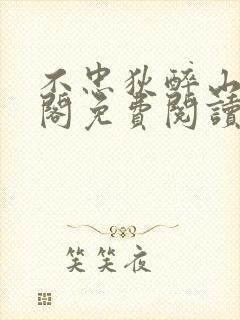 不忠狄醉山
閣免費閱讀
笑笑夜